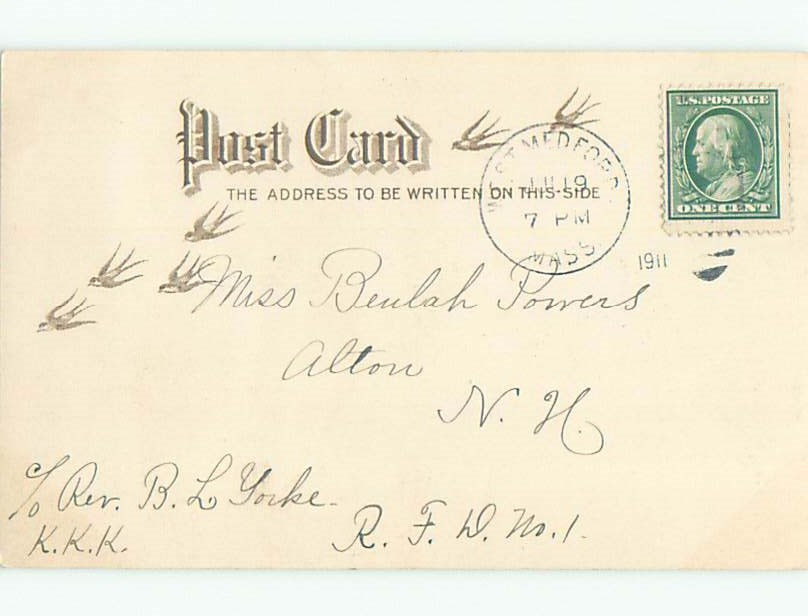 Post Card
THE ADDRESS TO BE WRITTEN ON THIS SIDE
U.S. POSTAGE
ONE CENT
WEST MEDFORD,
19
7 PM
MASS.
1911
Miss Beulah Powers
Alton
N. H.
c/o Rev. B. L Yorke
K.K.K.
R. F. D. No. 1.